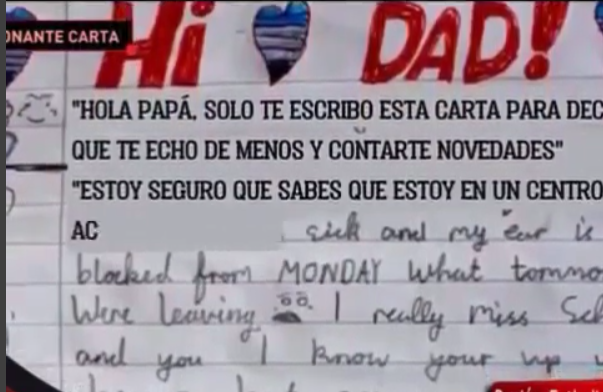 ONANTE CARTA
Hi DAD!
"HOLA PAPÁ, SOLO TE ESCRIBO ESTA CARTA PARA DEC
QUE TE ECHO DE MENOS Y CONTARTE NOVEDADES"
"ESTOY SEGURO QUE SABES QUE ESTOY EN UN CENTRO
AC
sick and my ear is
blocked from MONDAY what tommo
Were leaving I really miss Sch
and you I know your up